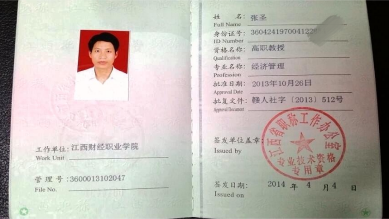 工作单位: 江西财经职业学院
Work Unit
管理号: 3600013102047
File No.
姓名: 张圣
Full Name
身份证号: 3604241970041
ID Number
资格名称: 高职教授
Qualification
专业名称: 经济管理
Profession
批准日期: 2013年10月26日
Approval Date
批复文号: 赣人社字〔2013〕512号
Approval Document
签发单位盖章:
Issued by
江西省职称工作办公室
专业技术资格
专用章
签发日期: 2014年4月4日
Issued on